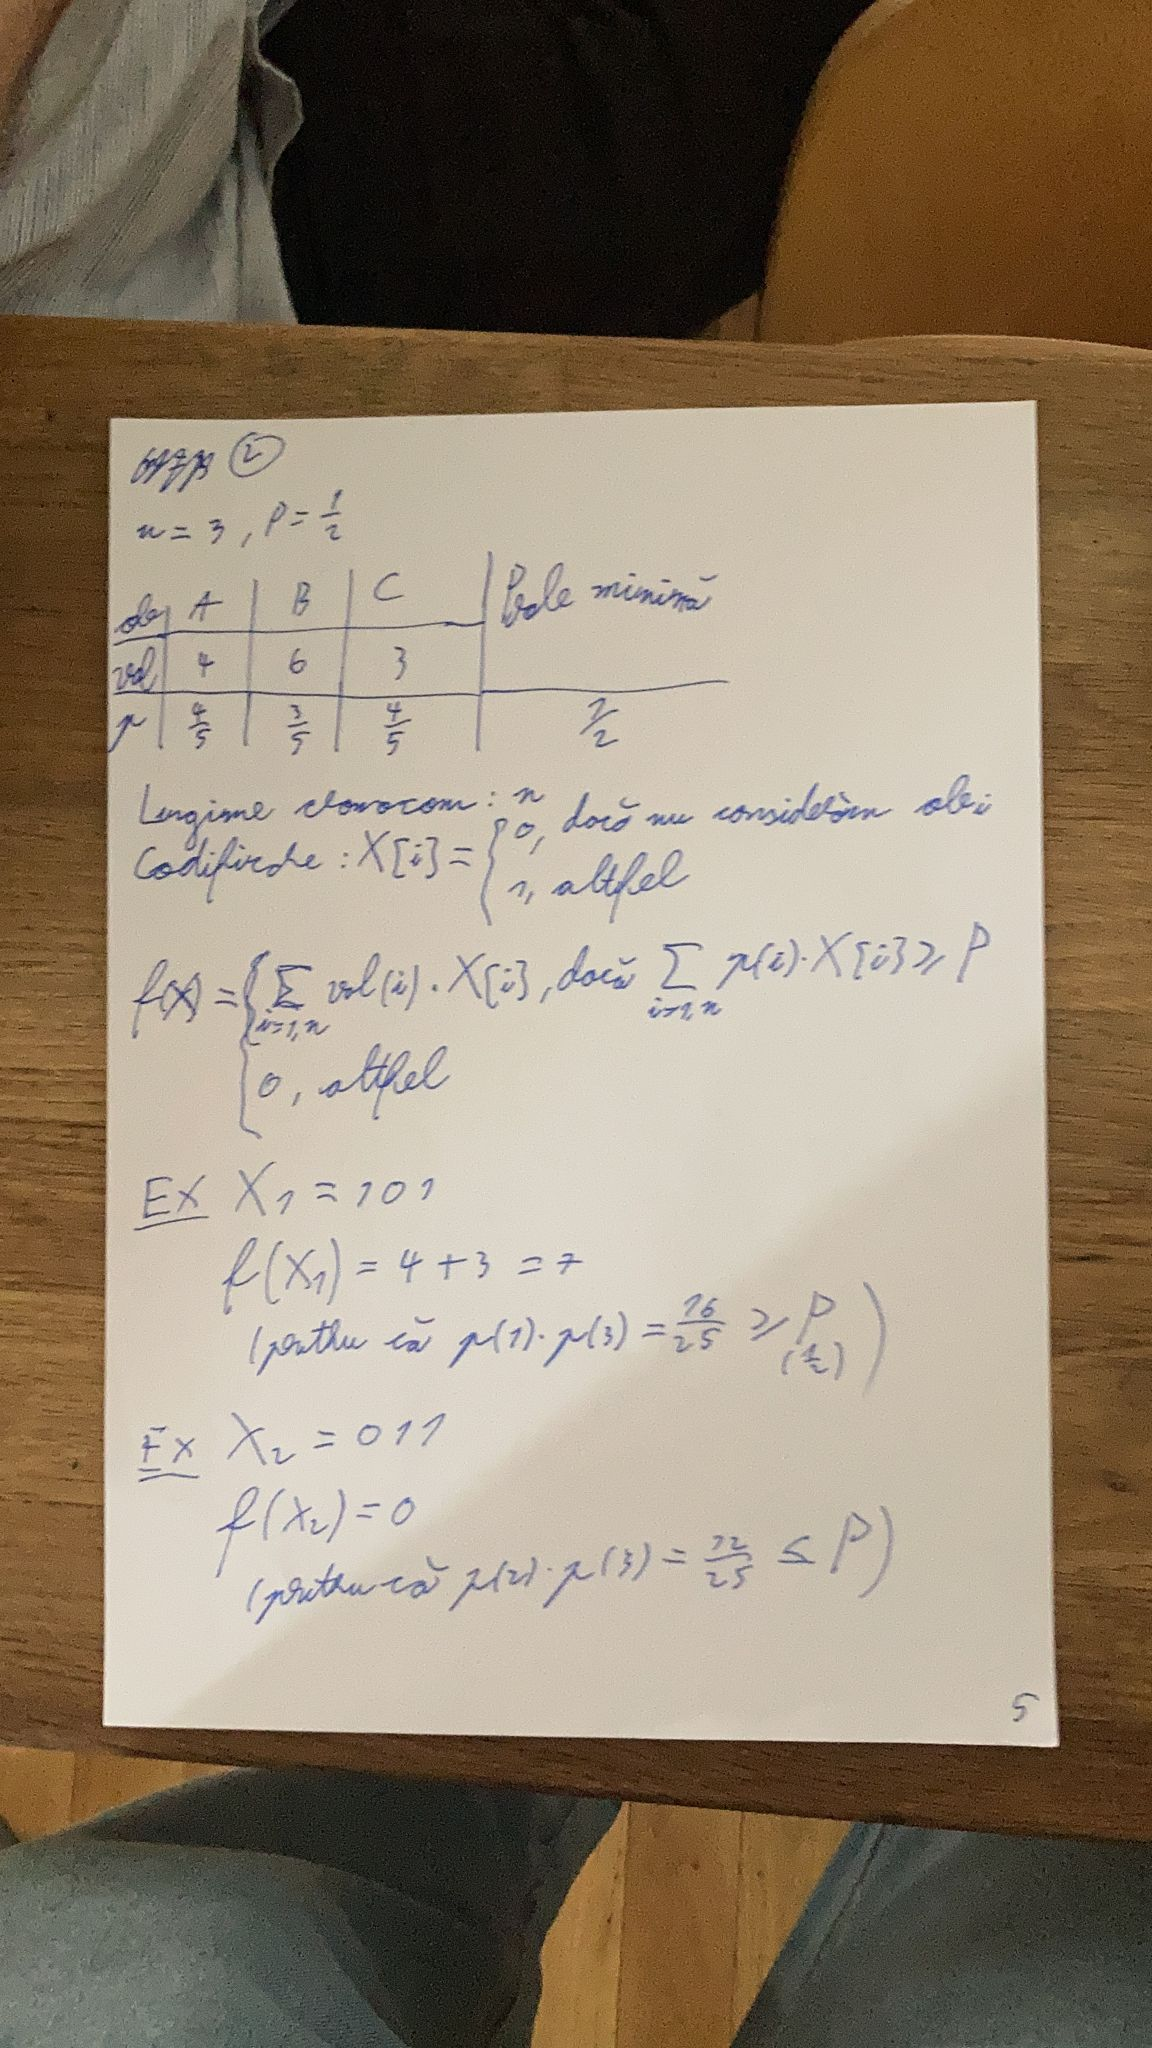 ②
n = 3, P = 1/2
ob A B C Prob minimă
val 4 6 3
p 4/5 3/5 4/5 1/2
Lungime cromozom: n
Codificare: X[i] = { 0, dacă nu considerăm ob i
1, altfel
f(x) = { Σ i=1,n val(i) · X[i], dacă Σ i=1,n p(i) · X[i] ≥ P
0, altfel
Ex X1 = 101
f(X1) = 4 + 3 = 7
(pentru că p(1) · p(3) = 16/25 ≥ P (1/2) )
Ex X2 = 011
f(X2) = 0
(pentru că p(2) · p(3) = 12/25 ≤ P)
5